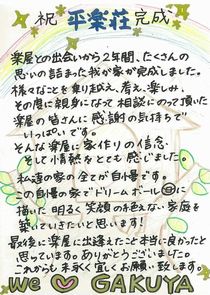 祝 平楽荘 完成
楽屋との出会いから2年間、たくさんの
思いの詰まった我が家が完成しました。
様々なことを乗り越え、考え、楽しみ、
その度に親身になって相談にのって頂いた
楽屋の皆さんに感謝の気持ちで
いっぱいです。
そんな楽屋に家作りの信念
そして情熱をとても感じました。
私達の家の全てが自慢です。
この自慢の家でドリームボール
に
描いた明るく笑顔の絶えない家庭を
築いていきたいと思います!
最後に楽屋に出逢えたこと本当に良かったと
思っています。ありがとうございました。
これからも末永く宜しくお願い致します。
We ♡ GAKUYA